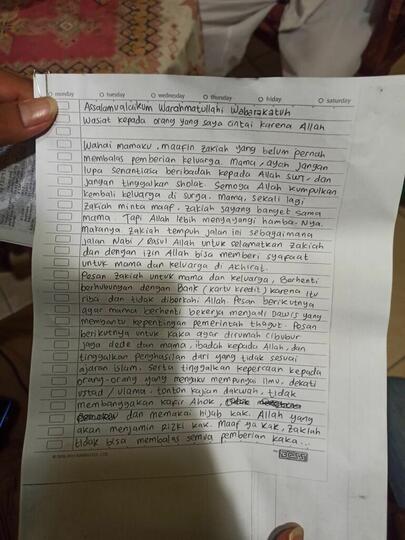 monday tuesday wednesday thursday friday saturday
Assalamualaikum Warahmatullahi Wabarakatuh
Wasiat kepada orang yang saya cintai karena Allah
Wahai mamaku, maafin zakiah yang belum pernah
membalas pemberian keluarga. Mama, ayah jangan
lupa senantiasa beribadah kepada Allah swt, dan
jangan tinggalkan sholat. Semoga Allah kumpulkan
kembali keluarga di surga. Mama, sekali lagi
zakiah minta maaf. zakiah sayang banget sama
mama. Tapi Allah lebih menyayangi hamba-Nya.
makanya zakiah tempuh jalan ini sebagaimana
jalan Nabi / Rasul Allah untuk selamatkan zakiah
dan dengan izin Allah bisa memberi syafaat
untuk mama dan keluarga di Akhirat.
Pesan zakiah untuk mama dan keluarga, Berhenti
berhubungan dengan Bank (kartu kredit) karena itu
riba dan tidak diberkahi Allah. Pesan berikutnya
agar mama berhenti bekerja menjadi Dawis yang
membantu kepentingan pemerintah thogut. Pesan
berikutnya untuk kaka agar dirumah cibubur
jaga dede dan mama, ibadah kepada Allah, dan
tinggalkan penghasilan dari yang tidak sesuai
ajaran islam. serta tinggalkan kepercaan kepada
orang-orang yang mengaku mempunyai ilmu, dekati
ustad / ulama. tonton kajian dakwah, tidak
membanggakan kafir Ahok,
dan memakai hijab kak. Allah yang
akan menjamin Rizki kak. Maaf ya kak, zakiah
tidak bisa membalas semua pemberian kaka...